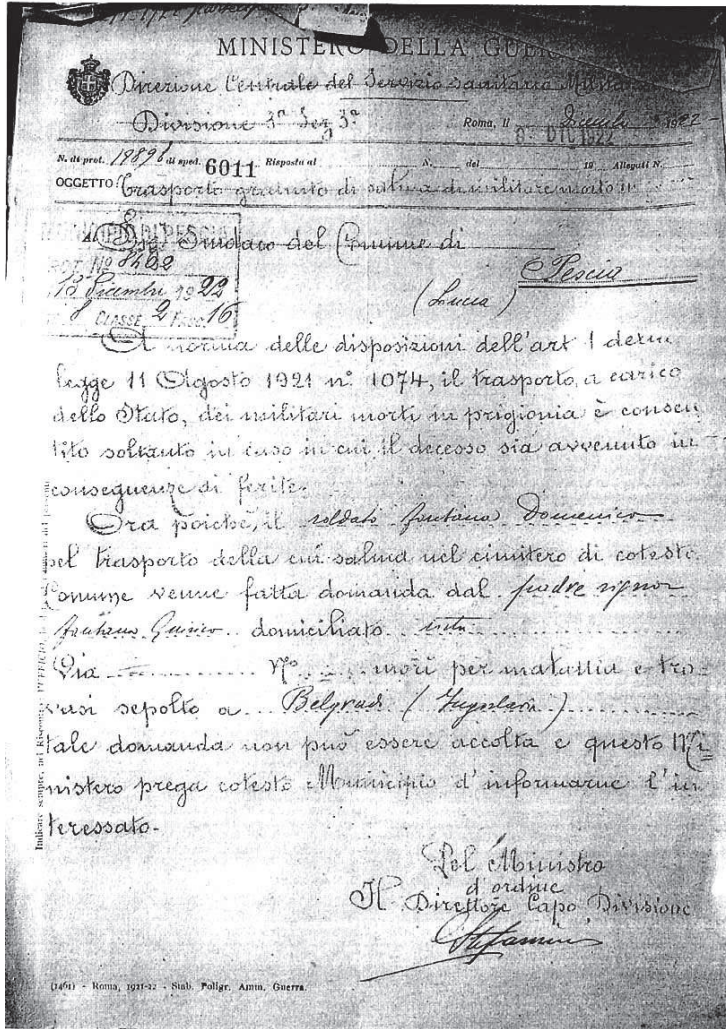 MINISTERO DELLA GUER
Direzione Centrale del Servizio sanitario Milita
Divisione 3ª Sez 3ª Roma, li 192
8 DIC 1922
N. di prot. di sped. 6011 Risposta al N. del 19 Allegati N.
OGGETTO Trasporto gratuito di salma di militare morto in
Al Sig. Sindaco del Comune di
MUNICIPIO DI PESCIA
Pescia
(Lucca)
PROT. Nº 8462
13 Dicembre 1922
8 CLASSE 2 Fasc. 16
A norma delle disposizioni dell'art 1 della
legge 11 Agosto 1921 nº 1074, il trasporto, a carico
dello Stato, dei militari morti in prigionia è consen
tito soltanto in caso in cui il decesso sia avvenuto in
conseguenze di ferite.
Ora poichè, il soldato Fontana Domenico
pel trasporto della cui salma nel cimitero di cotesto
Comune venne fatta domanda dal padre signor
Fontana domiciliato
Via Nº morì per malattia e tro-
vasi sepolto a Belgrado (Jugoslavia)
tale domanda non può essere accolta e questo Mi-
nistero prega cotesto Municipio d'informarne l'in
teressato.
Pel Ministro
d'ordine
Il Direttore Capo Divisione
Indicare sempre, nel
(1461) - Roma, 1921-22 - Stab. Poligr. Amm. Guerra.